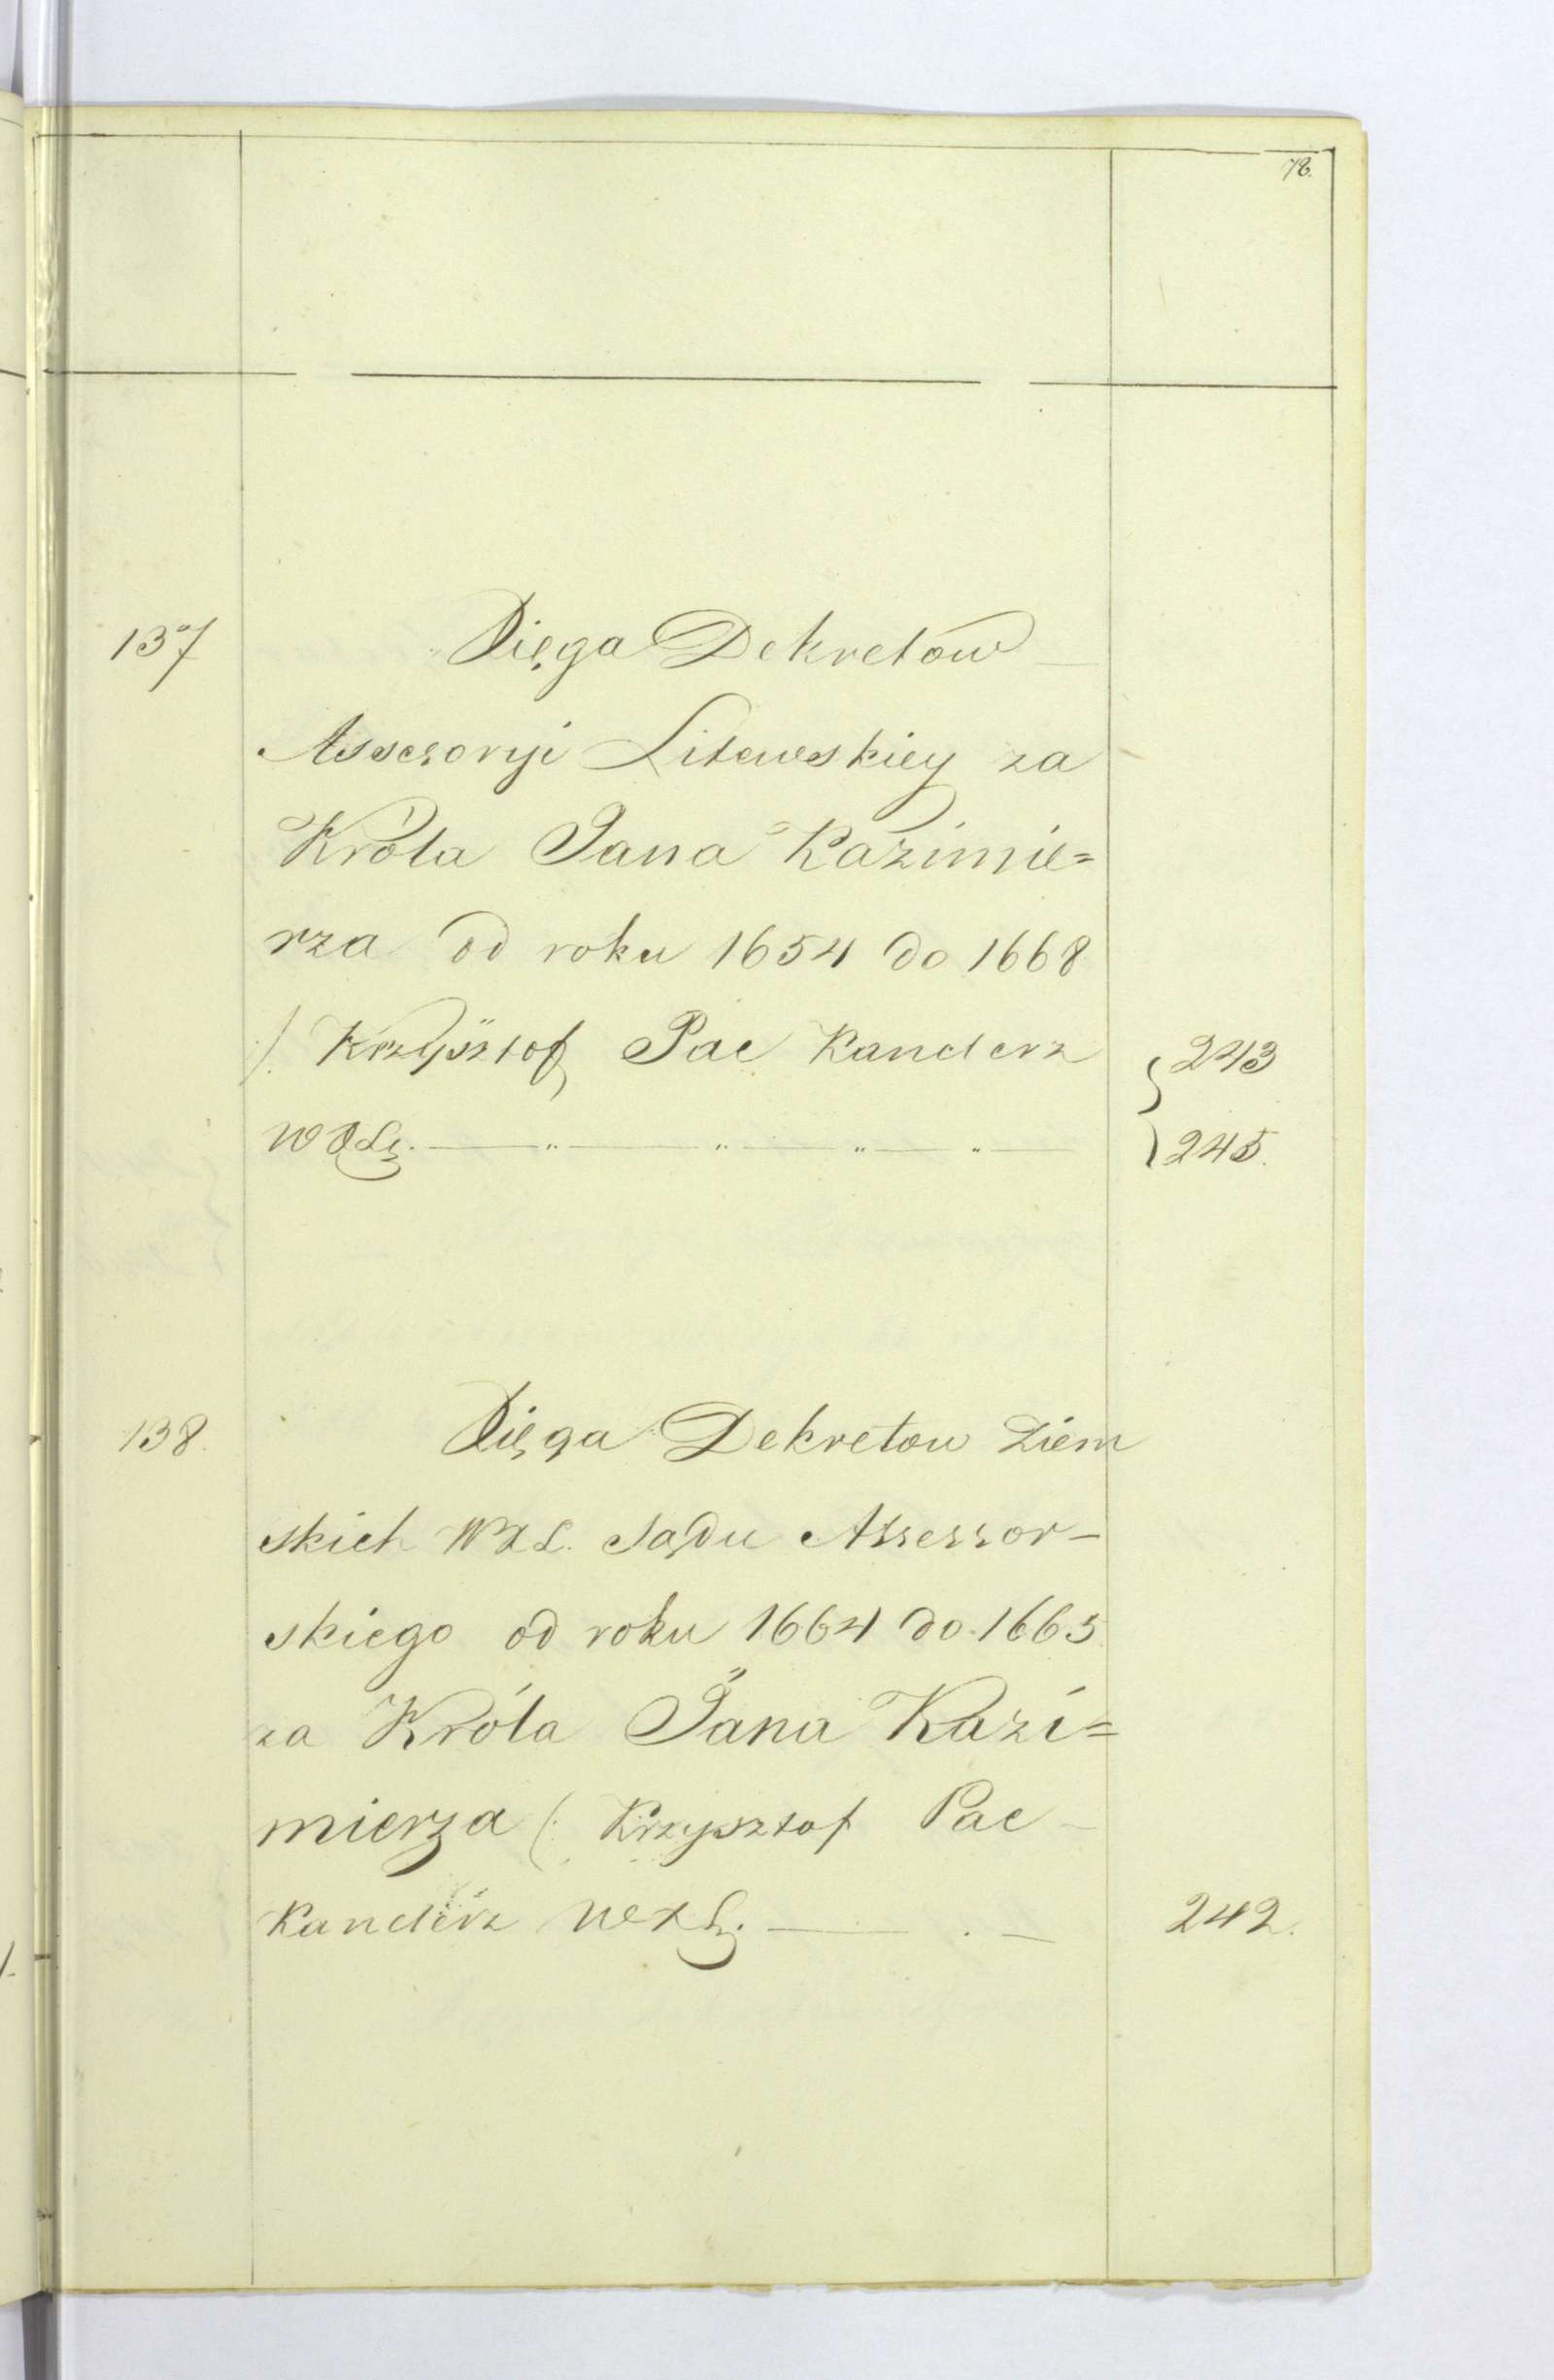 78.
137 Xięga Dekretów
Assesoryi Litewskiey za
Króla Jana Kazimie=
rza od roku 1654 do 1668
/. Krzysztof Pac Kanclerz 243
WXLg. 245.
138. Xięga Dekretow Ziem
skich WXL. Sądu Assessor-
skiego od roku 1664 do 1665
za Króla Jana Kazi=
mierza (: Krzysztof Pac
Kanclerz WXLg. 242.